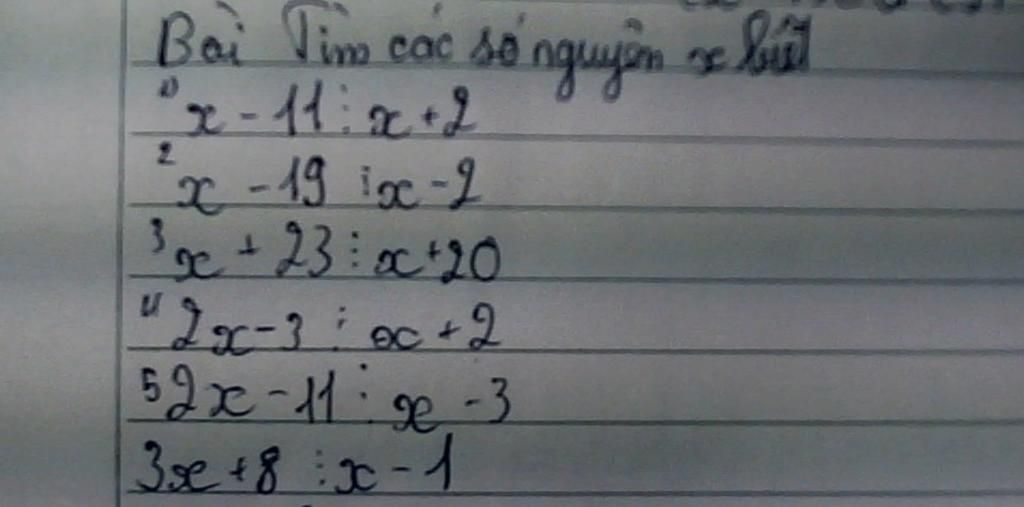 Bài Tìm các số nguyên x biết
1) x - 11 ⋮ x + 2
2 x - 19 ⋮ x - 2
3 x + 23 ⋮ x + 20
4 2x - 3 ⋮ x + 2
5 2x - 11 ⋮ x - 3
3x + 8 ⋮ x - 1